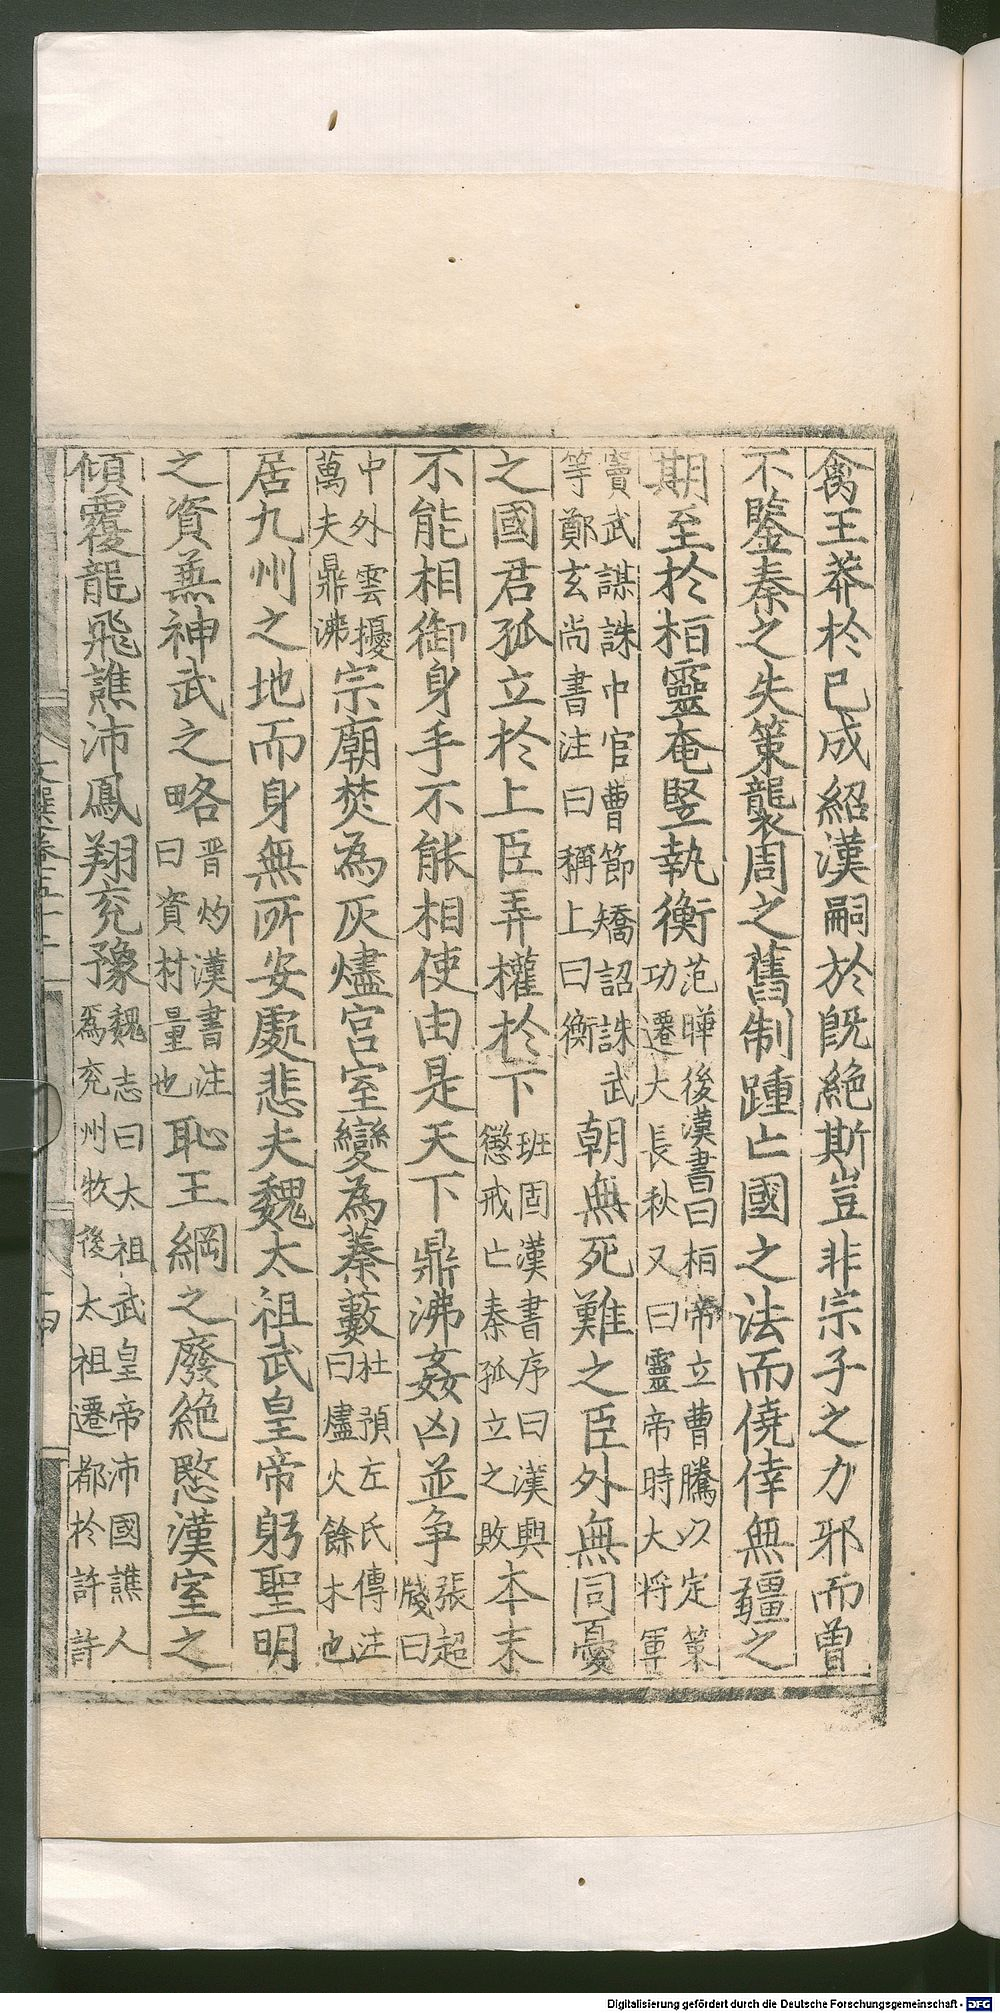 禽王莽於已成紹漢嗣於旣絶斯豈非宗子之力邪而曾
不鑒秦之失策襲周之舊制踵亡國之法而僥倖無疆之
期至於栢靈奄竪執衡范曄後漢書曰栢帝立曹騰以定策
功遷大長秋又曰靈帝時大将軍
竇武謀誅中官曹節矯詔誅武
等鄭玄尚書注曰稱上曰衡朝無死難之臣外無同憂
之國君孤立於上臣弄權於下班固漢書序曰漢興
懲戒亡秦孤立之敗本末
不能相御身手不能相使由是天下鼎沸姦凶並争張超
牋曰
中外雲擾
萬夫鼎沸宗廟焚為灰燼宮室變為蓁藪杜預左氏傳注
曰燼火餘木也
居九州之地而身無所安處悲夫魏太祖武皇帝躬聖明
之資兼神武之略晋灼漢書注
曰資材量也恥王綱之廢絶愍漢室之
傾覆龍飛譙沛鳳翔兖豫魏志曰太祖武皇帝沛國譙人
為兖州牧後太祖遷都於許許
文選卷五十二
Digitalisierung gefördert durch die Deutsche Forschungsgemeinschaft - DFG